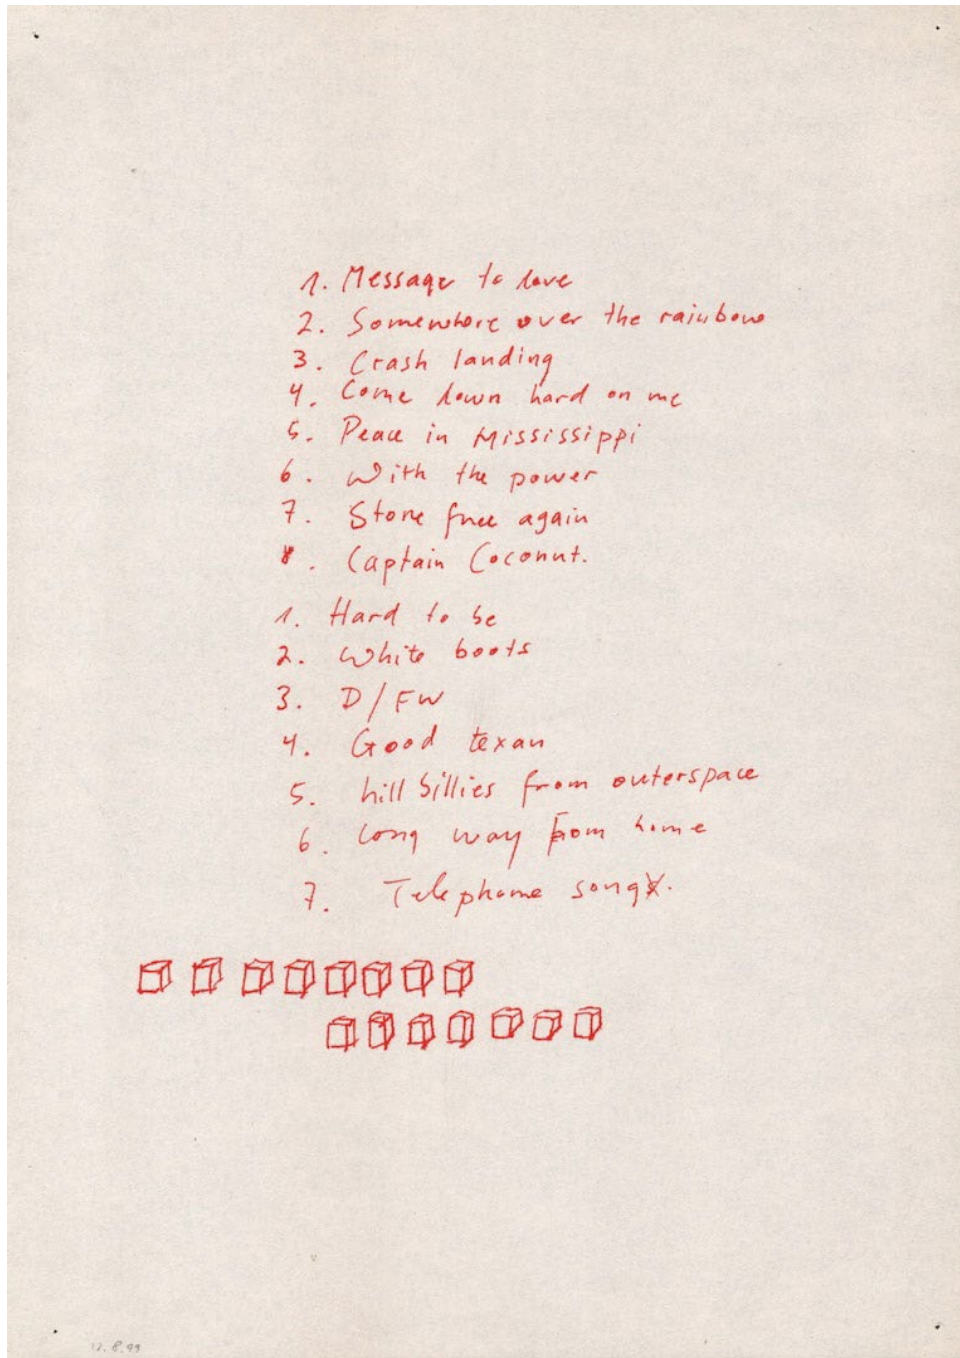 1. Message to love
2. Somewhere over the rainbow
3. Crash landing
4. Come down hard on me
5. Peace in Mississippi
6. With the power
7. Stone free again
8. Captain Coconut.
1. Hard to be
2. White boots
3. D/FW
4. Good texan
5. hill billies from outerspace
6. Long way from home
7. Telephone song.
17.8.99